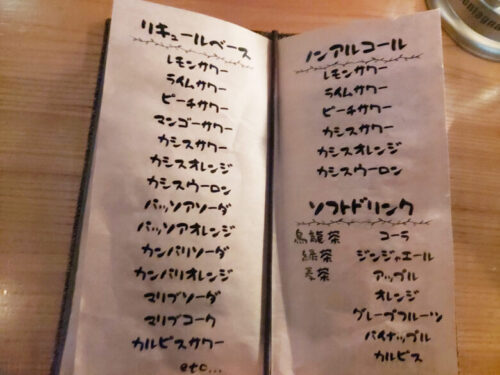 リキュールベース
レモンサワー
ライムサワー
ピーチサワー
マンゴーサワー
カシスサワー
カシスオレンジ
カシスウーロン
パッソアソーダ
パッソアオレンジ
カンパリソーダ
カンパリオレンジ
マリブソーダ
マリブコーク
カルピスサワー
etc...
ノンアルコール
レモンサワー
ライムサワー
ピーチサワー
カシスサワー
カシスオレンジ
カシスウーロン
ソフトドリンク
烏龍茶
緑茶
麦茶
コーラ
ジンジャエール
アップル
オレンジ
グレープフルーツ
パイナップル
カルピス